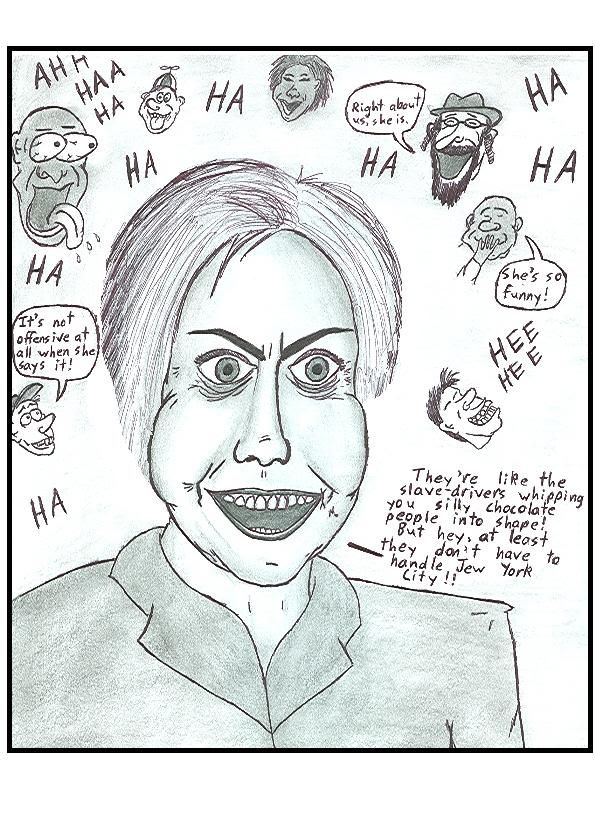 AHH
HAA
HA
HA
Right about
us, she is.
HA
HA
HA
HA
HA
She's so
funny!
It's not
offensive at
all when she
says it!
HEE
HEE
HA
They're like the
slave-drivers whipping
you silly, chocolate
people into shape!
But hey, at least
they don't have to
handle Jew York
City!!